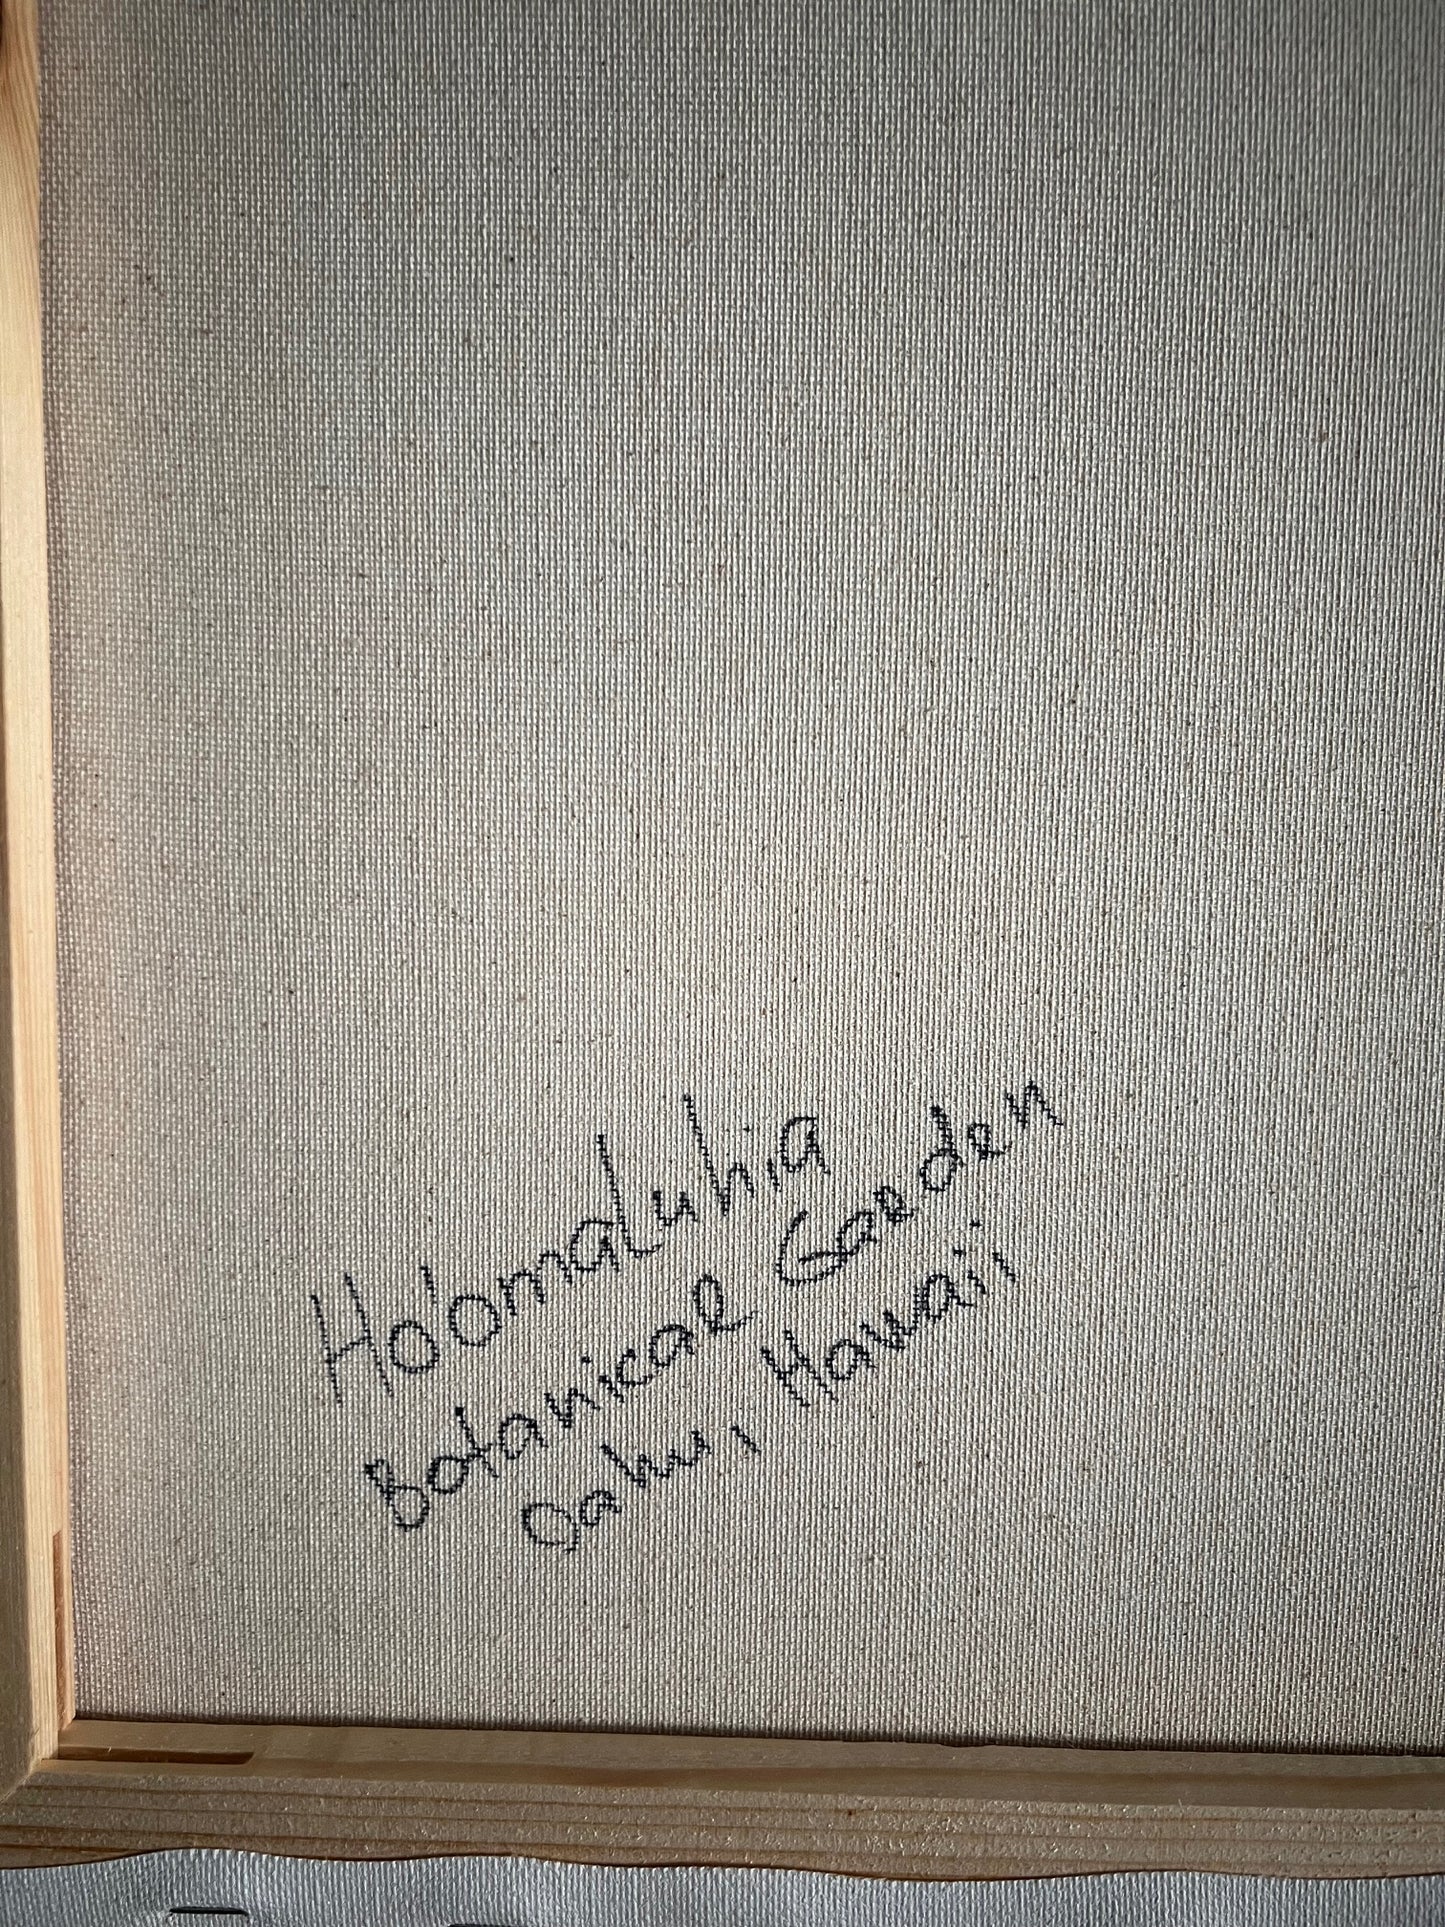 Ho'omaluhia
Botanical Garden
Oahu, Hawaii